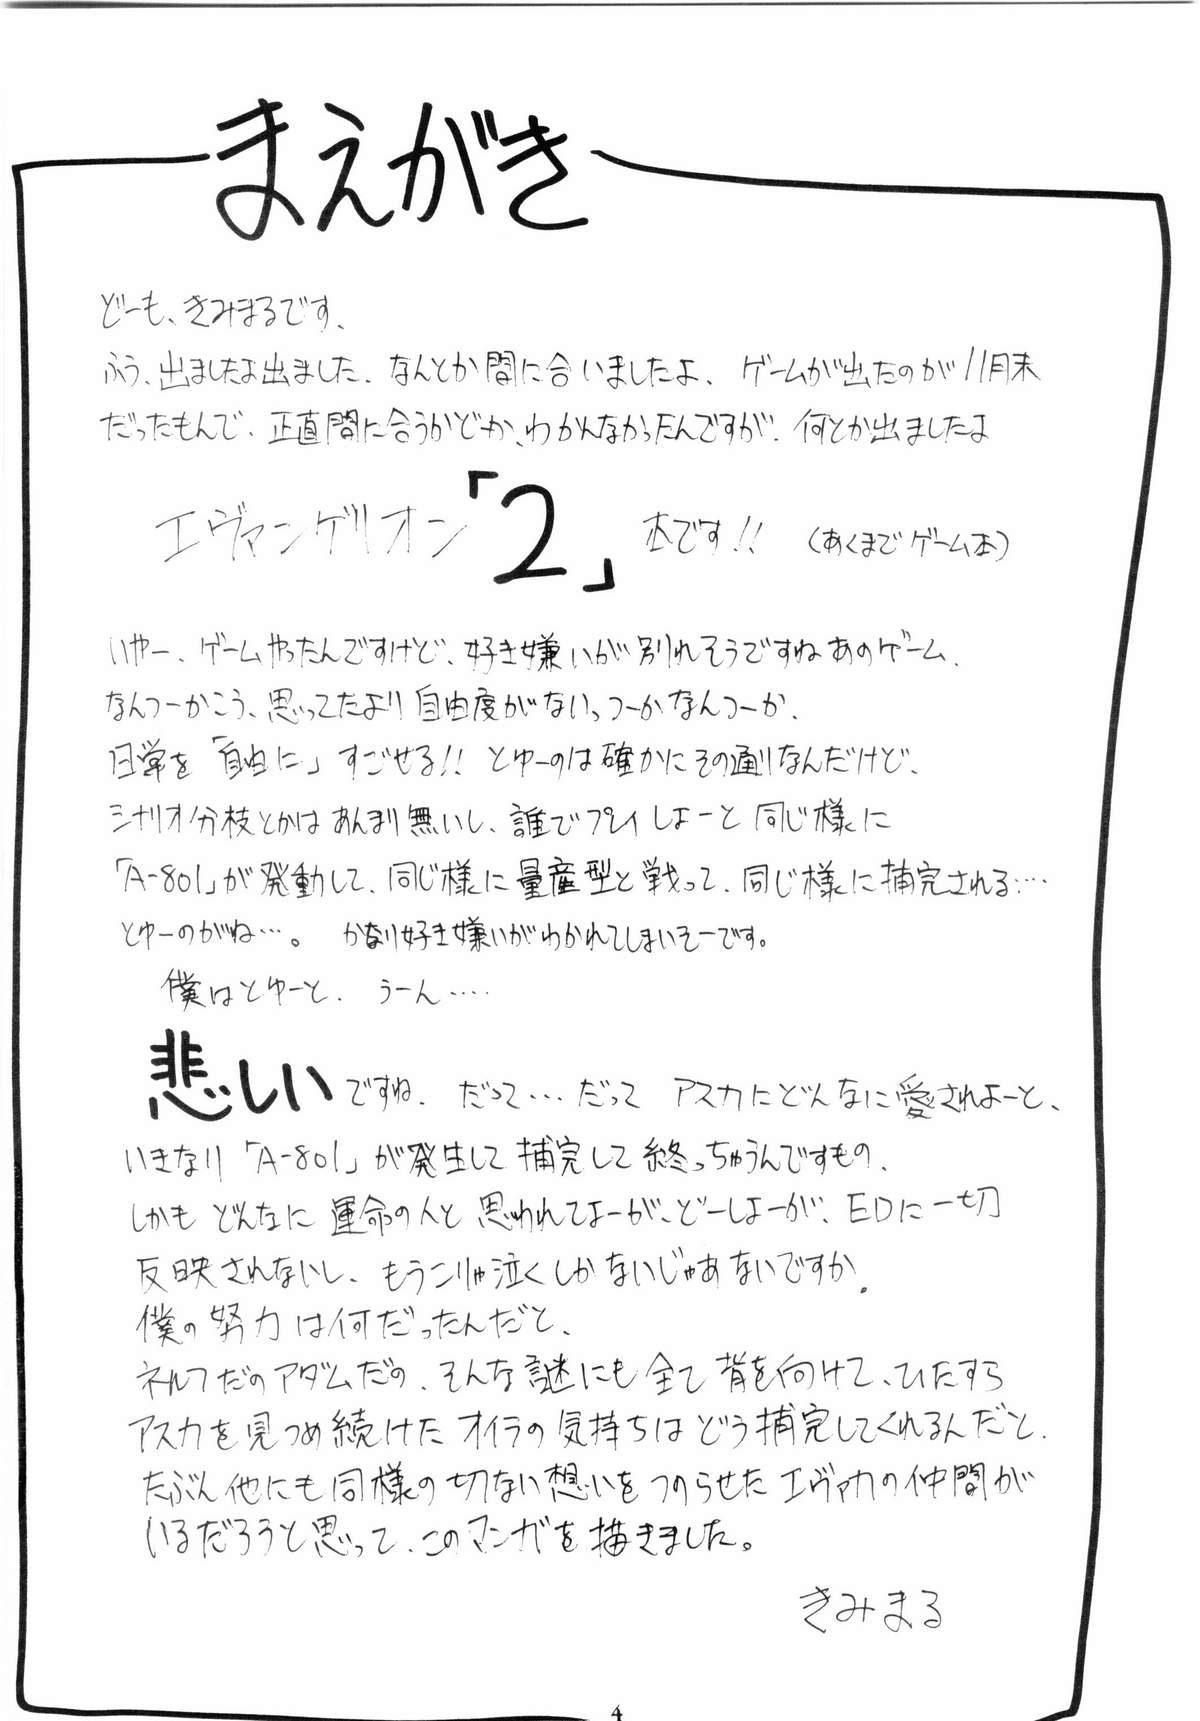 まえがき
どーも、きみまるです、
ふう、出ましたよ出ました、なんとか間に合いましたよ、ゲームが出たのが11月末
だったもんで、正直間に合うかどーか、わかんなかったんですが、何とか出ましたよ
エヴァンゲリオン「2」本です!!（あくまでゲーム本）
いやー、ゲームやったんですけど、好き嫌いが別れそうですねあのゲーム、
なんつーかこう、思ってたより自由度がないっつーかなんつーか、
日常を「自由に」すごせる!!とゆーのは確かにその通りなんだけど、
シナリオ分枝とかはあんまり無いし、誰でプレイしよーと同じ様に
「A-801」が発動して、同じ様に量産型と戦って、同じ様に補完される……
とゆーのがね…。かなり好き嫌いがわかれてしまいそーです。
僕はとゆーと、うーん……
悲しいですね、だって…だってアスカにどんなに愛されよーと、
いきなり「A-801」が発生して補完して終っちゅうんですもの、
しかもどんなに運命の人と思われてよーが、どーしよーが、EDに一切
反映されないし、もうこりゃ泣くしかないじゃあないですか。
僕の努力は何だったんだと、
ネルフだのアダムだの、そんな謎にも全て背を向けて、ひたすら
アスカを見つめ続けたオイラの気持ちはどう補完してくれるんだと、
たぶん他にも同様の切ない想いをつのらせたエヴァ力の仲間が
いるだろうと思って、このマンガを描きました。
きみまる
4